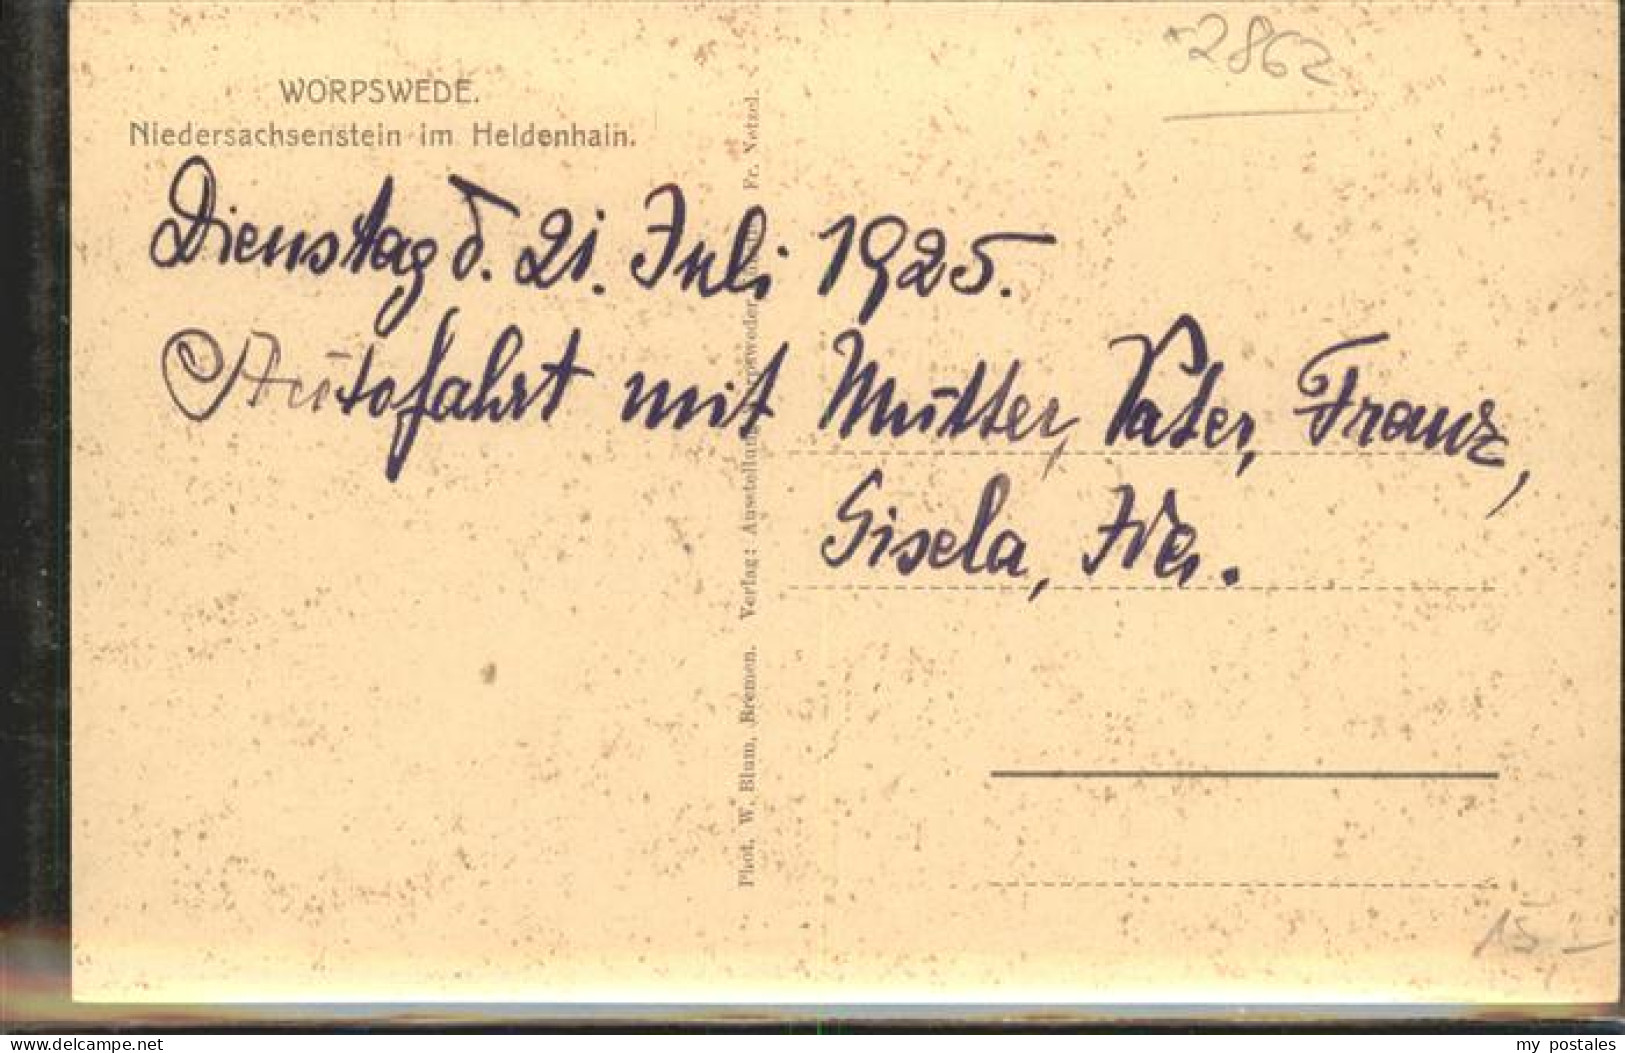 -2862
WORPSWEDE.
Niedersachsenstein im Heldenhain.
Dienstag d. 21. Juli 1925.
Autofahrt mit Mutter, Vater, Franz,
Gisela,
Phot. W. Blum, Bremen. Verlag: Ausstellung Worpsweder Fr. Netzel.
15 -
www.delcampe.net
my_postales